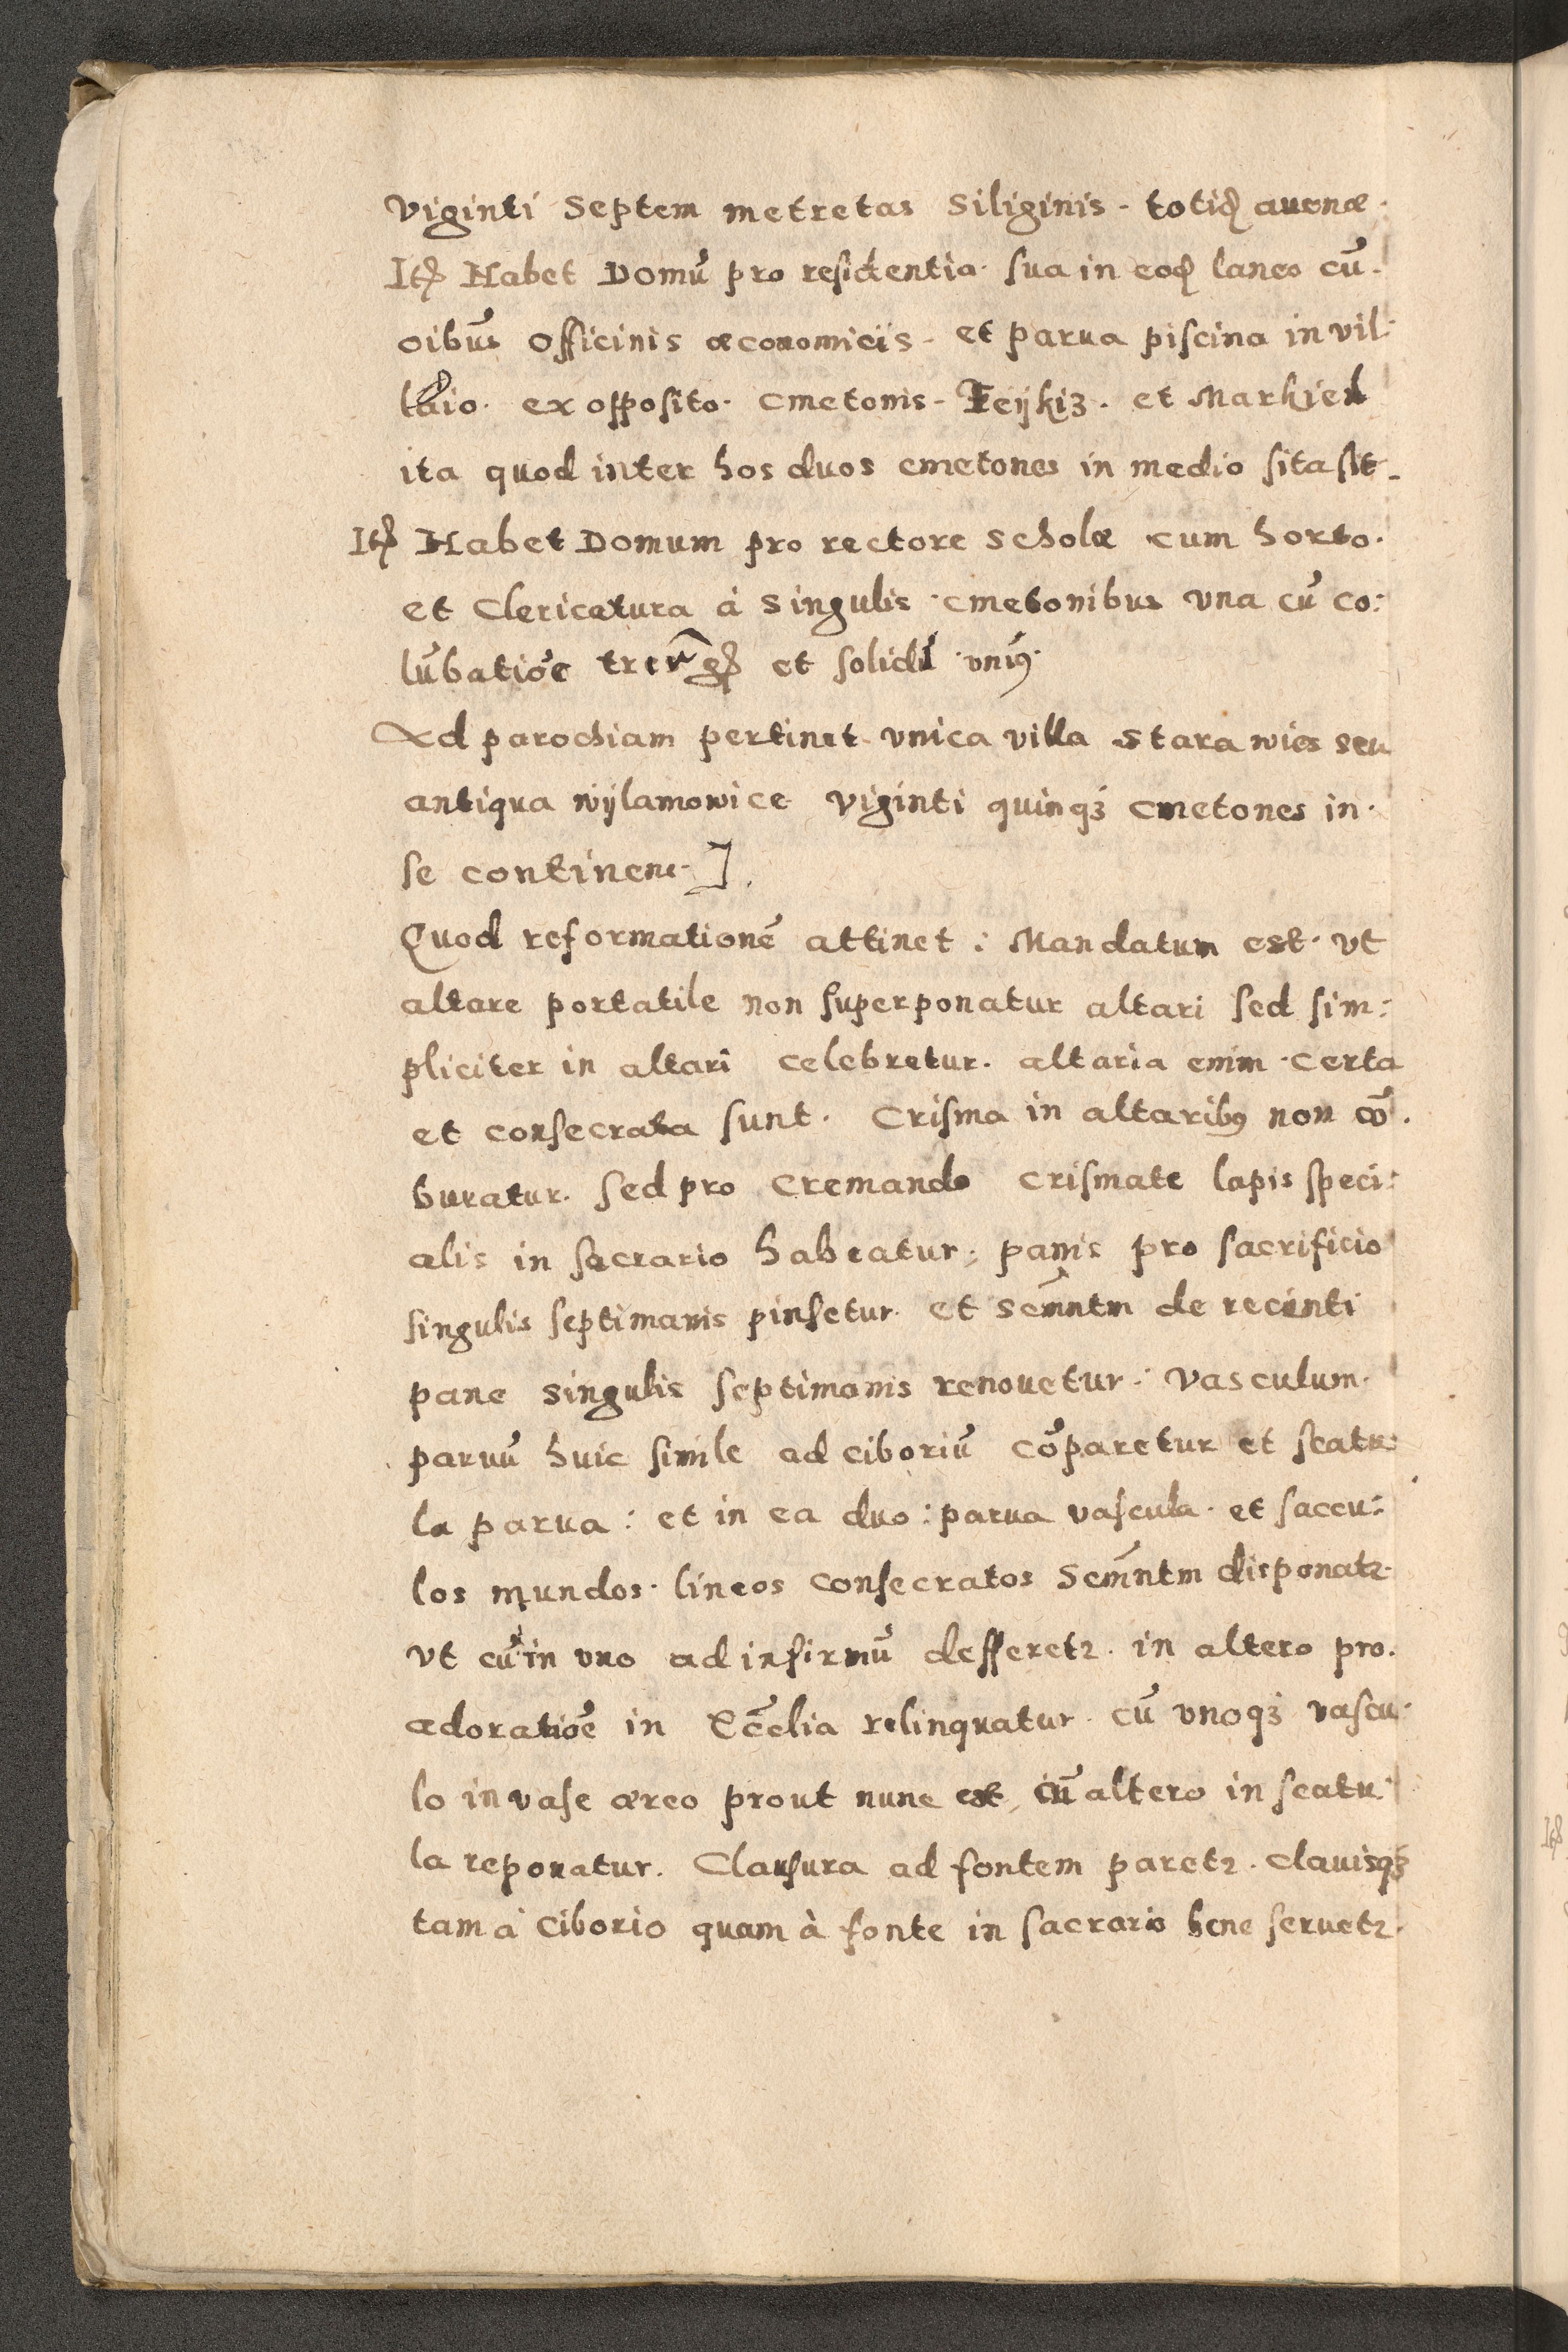 Viginti Septem metretas Siliginis · totiđ auenæ ·
Itꝫ Habet Domũ pro residentia · sua in eođ laneo cũ ·
oibus officinis œconomiciis - et parua piscina in vil
laio · ex opposito · cmetonis - Feijkiz · et Markiel
ita quod inter hos duos cmetones in medio sita sit -
Itꝫ Habet Domum pro rectore scholæ cum horto ·
et Clericatura à singulis · cmetonibus vna cũ co:
lũbatiõe trer gꝭ et solidi · vniꝰ ·
Ad parochiam pertinet vnica villa Stara wies seu
antiqua wijlamowice Viginti quinqꝫ cmetones in ·
se continens ]
Quod reformationẽ attinet : Mandatum est · vt
altare portatile non superponatur altari sed sim:
pliciter in altari celebretur. altaria enim · certa
et consecrata sunt · Crisma in altaribꝰ non cõ ·
buratur · sed pro cremando crismate lapis speci:
alis in sacrario habeatur ; panis pro sacrificio
singulis septimanis pinsetur · et Semñtm de recenti
pane singulis septimanis renouetur : Vasculum ·
paruũ huic simile ad ciboriũ cõparetur et scatu:
la parua : et in ea duo : parua vascula · et saccu:
los mundos · lineos consecratos Semñtm disponatr ·
vt cũ in vno ad infirmũ defferetr · in altero pro ·
adoratiõe in Eccẽlia relinquatur · cũ vnoqꝫ vascu ·
lo in vase æreo prout nunc est, cũ altero in scatu
la reponatur. Clausura ad fontem paretr · clauisqꝫ
tam à Ciborio quam à fonte in sacrario bene seruetr ·